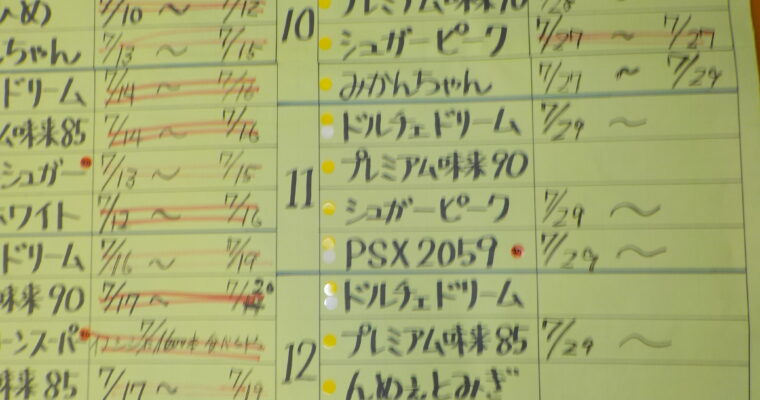 め 7/10 ～ 7/12
ちゃん 7/13 ～ 7/15
ドリーム 7/14 ～ 7/16
味来85 7/14 ～ 7/16
シュガー 7/13 ～ 7/15
ホワイト 7/12 ～ 7/16
ドリーム 7/16 ～ 7/19
味来 90 7/17 ～
ーンスーパー
味来 85 7/17 ～ 7/19
10
プレミアム味来90 7/28
シュガーピーク 7/27 ～ 7/27
みかんちゃん 7/27 ～ 7/29
11
ドルチェドリーム 7/29 ～
プレミアム味来90
シュガーピーク 7/29 ～
PSX2059 7/29 ～
12
ドルチェドリーム
プレミアム味来85 7/29 ～
んめぇとみぎ